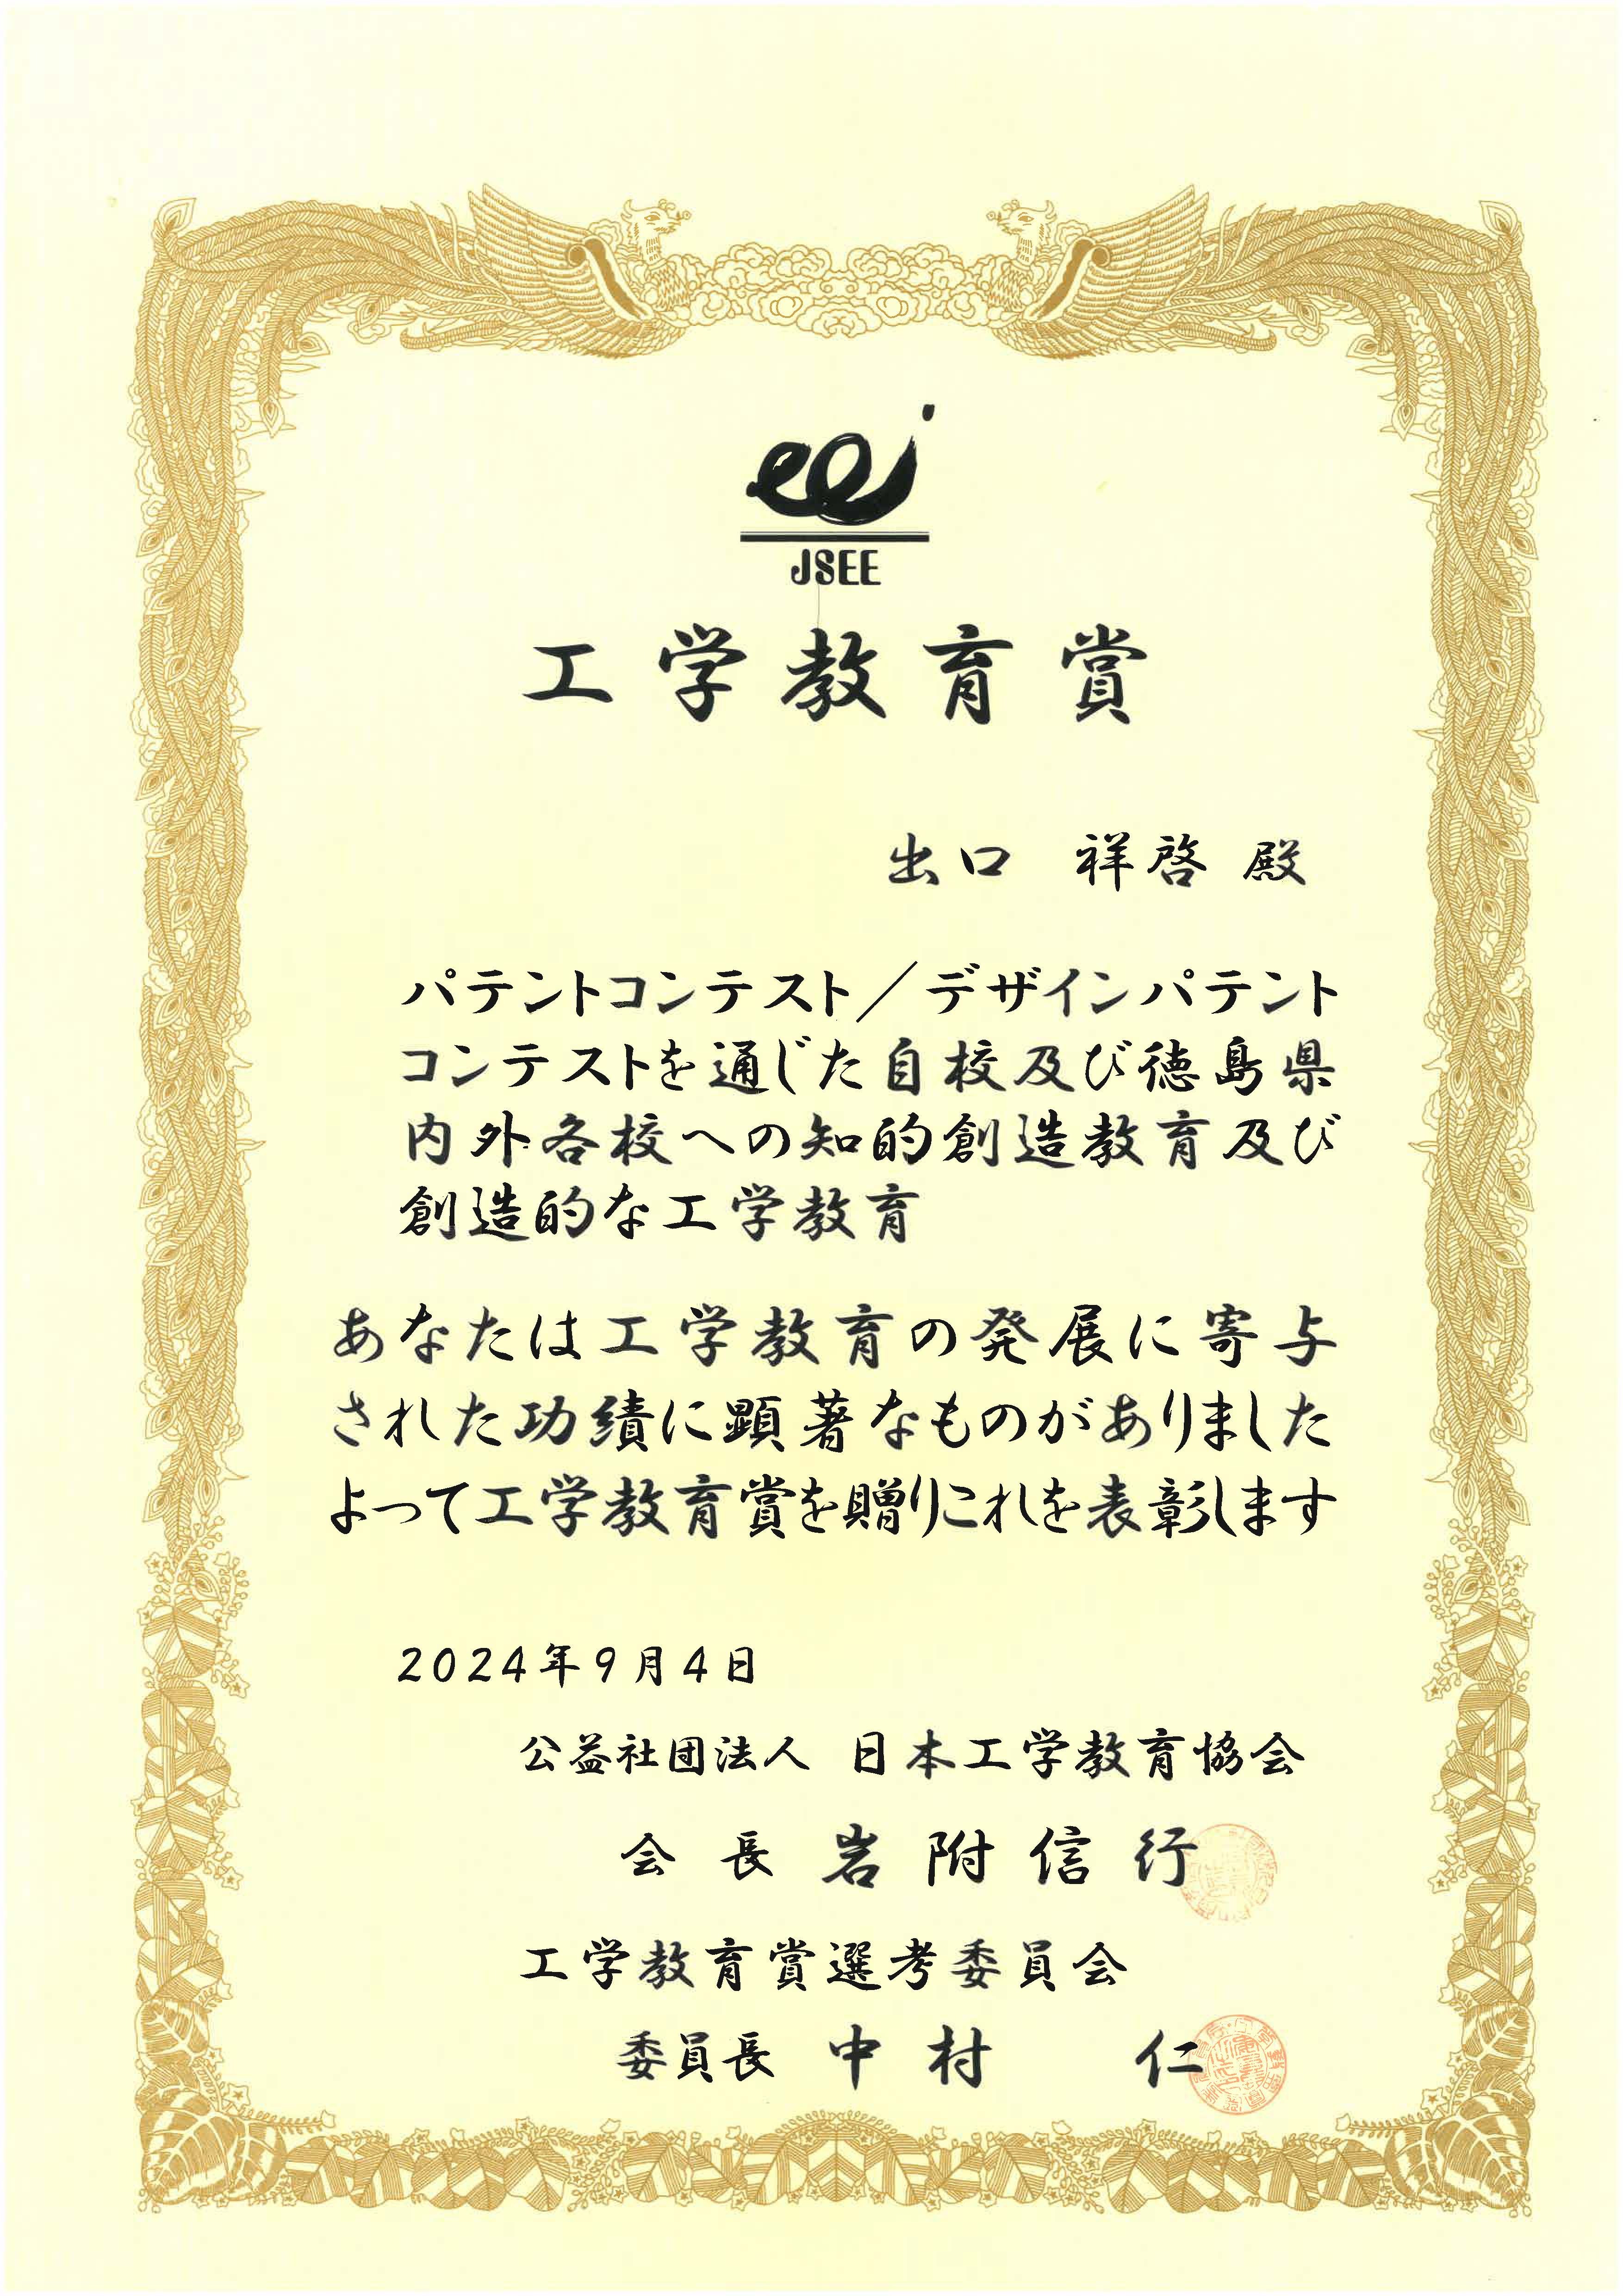 eej
JSEE
工学教育賞
出口 祥啓 殿
パテントコンテスト／デザインパテント
コンテストを通じた自校及び徳島県
内外各校への知的創造教育及び
創造的な工学教育
あなたは工学教育の発展に寄与
された功績に顕著なものがありました
よって工学教育賞を贈りこれを表彰します
2024年9月4日
公益社団法人 日本工学教育協会
会長 岩附信行
工学教育賞選考委員会
委員長 中村 仁